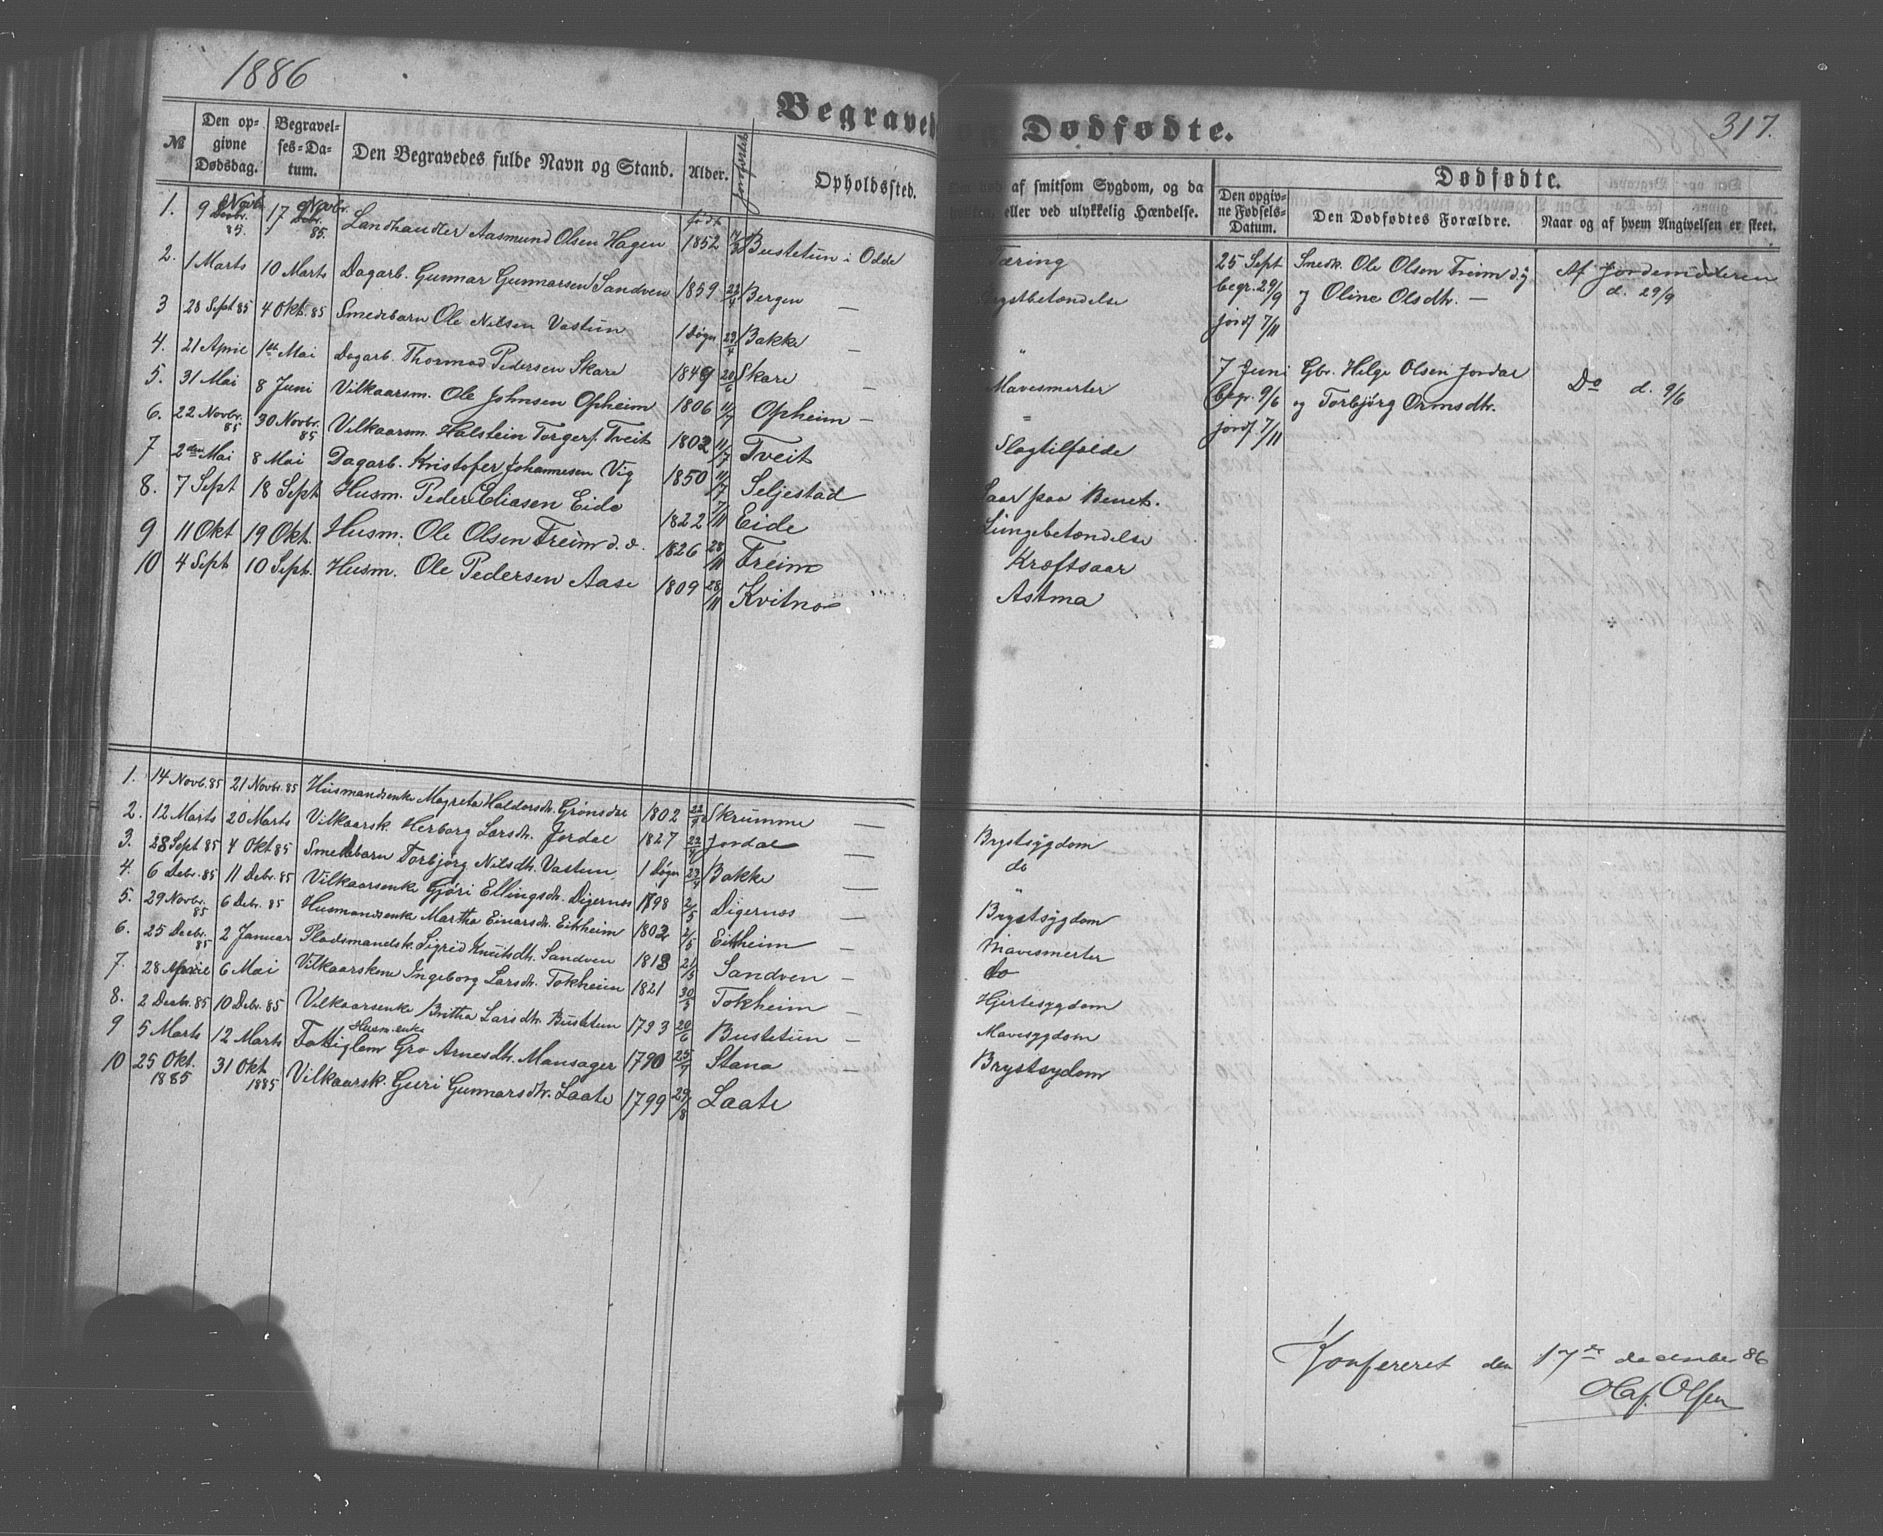 1886
317.
Begravede Dødfødte.
№ Den opgivne Dødsdag. Begravelses-Datum. Den Begravedes fulde Navn og Stand. Alder. Jordfæstet Opholdssted.
af smitsom Sygdom, og da eller ved ulykkelig Hændelse.
Dødfødte.
Den opgivne Fødsels-Datum. Den Dødfødtes Forældre. Naar og af hvem Angivelsen er skeet.
1. 9 Novbr. 85. 17 Novbr. 85. Landhandler Aasmund Olsen Hagen født 1852 Bustetun i Odde Tæring
2. 1 Marts 10 Marts Dagarb. Gunnar Gunnarsen Sandven 1859 22/4 Bergen — Brystbetændelse
3 28 Sept 85 4 Okt. 85 Smedebarn Ole Nilsen Vastun 1 Døgn 23/4 Bakke — "
4. 21 April 1ste Mai Dagarb. Thormod Pedersen Skare 1849 20/6 Skare — Mavesmerter
5. 31 Mai 8 Juni Vilkaarsm. Ole Johnsen Opheim 1806 11/7 Opheim — "
6. 22 Novbr. 85 30 Novbr. 85 Vilkaarsm. Halstein Torgers. Tveit 1802 11/7 Tveit Slagtilfælde
7 2den Mai 8 Mai Dagarb. Kristofer Johannesen Vig 1850 11/7 Seljestad Saar paa Benet.
8. 7 Sept 18 Sept Husm. Peder Eliasen Eide 1822 7/11 Eide Lungebetændelse
9 11 Okt 19 Okt. Husm. Ole Olsen Freim d. æ. 1826 28/11 Freim Kræftsaar
10 4 Sept 10 Sept. Husm. Ole Pedersen Aase 1809 28/11 Kvitno Astma
25 Sept begr. 29/9 jordf 7/11 Smedk. Ole Olsen Freim d.y og Oline Olsdtr. — Af Jordemoderen d. 29/9
7 Juni begr. 9/6 jordf 7/11 Gbr. Helge Olsen Jordal og Torbjørg Ormsdtr. Do d. 9/6
1. 14 Novb. 85 21 Novbr. 85 Husmandsenke Magreta Haldorsdtr. Grønsdal 1802 22/4 Skrumme — Brystsygdom
2. 12 Marts 20 Marts Vilkaarsk. Herborg Larsdtr. Jordal 1827 22/4 Jordal — do
3. 28 Sept 85 4 Okt 85 Smedebarn Torbjørg Nilsdtr. Vastun 1 Døgn 23/4 Bakke — "
4. 6 Debr. 85 11 Debr. 85 Vilkaarsenke Gjøri Ellingsdtr. Digernes 1798 2/5 Digernes — Brystsygdom
5. 29 Novbr. 85 6 Debr. 85 Husmandsenke Martha Einarsdtr. Eitheim 1802 2/5 Eitheim — Mavesmerter
6. 25 Decbr. 85 2 Januar Pladsmandsk. Sigrid Knutsdtr. Sandven 1813 21/5 Sandven — do
7. 28 April 6 Mai Vilkaarskone Ingeborg Larsdtr. Tokheim 1821 30/5 Tokheim — Hjertesygdom
8. 2 Decbr. 85 10 Debr. 85 Vilkaarsenke Britha Larsdtr. Bustetun 1793 20/6 Bustetun — Mavesygdom
9 5 Marts 12 Marts Fattiglem Husm. enke Gro Arnesdtr. Mansager 1790 25/7 Stana — Brystsydom
10 25 Okt. 1885 31 Okt 1885 Vilkaarsk. Guri Gunnarsdtr. Laate 1799 29/8 Laate
Konfereret den 17de december 86
Olaf. Olsen